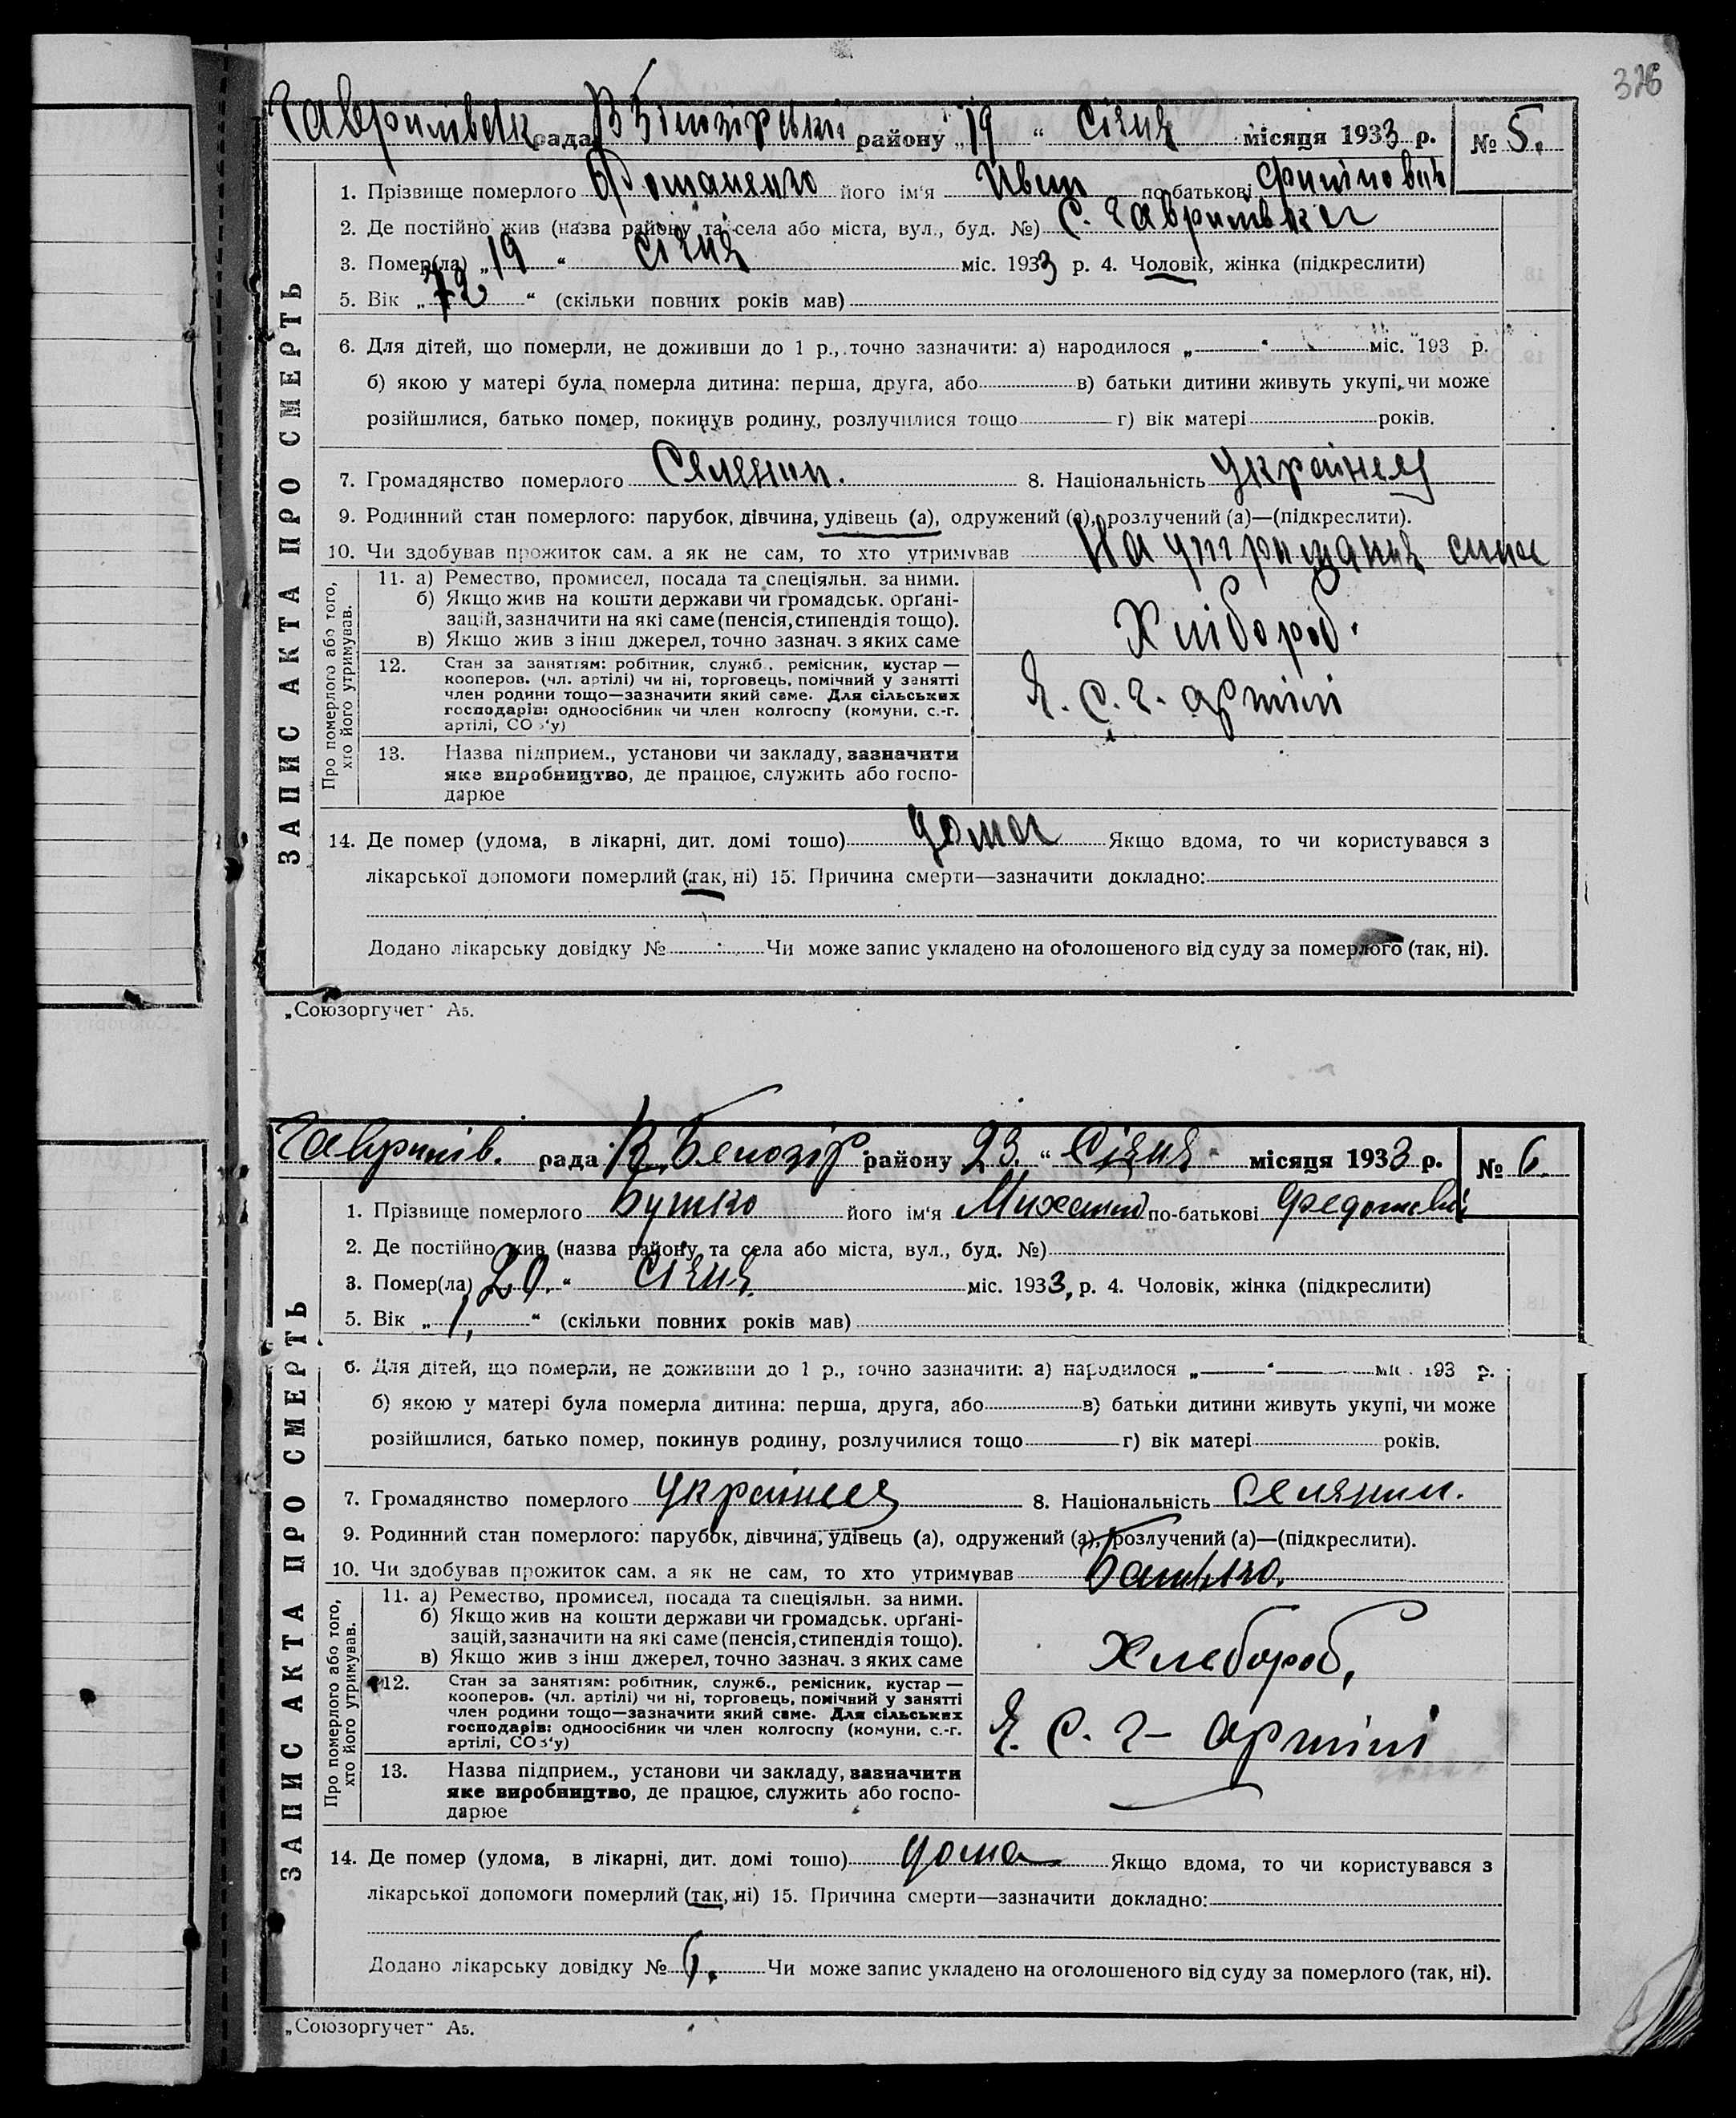 326
рада В Білозірський району „19 “ Січня місяця 1933 р. № 5.
ЗАПИС АКТА ПРО СМЕРТЬ
1. Прізвище померлого його ім‘я Иван по батькові
2. Де постійно жив (назва району та села або міста, вул., буд. №) С. Гаврилівка
3. Помер(ла) „ 19 “ Січня міс. 1933 р. 4. Чоловік, жінка (підкреслити)
5. Вік „ 72 “ (скільки повних років мав)
6. Для дітей, що померли, не доживши до 1 р., точно зазначити: а) народилося „ “ міс. 193 р.
б) якою у матері була померла дитина: перша, друга, або в) батьки дитини живуть укупі, чи може
розійшлися, батько помер, покинув родину, розлучилися тощо г) вік матері років.
7. Громадянство померлого Селянин. 8. Національність Українец
9. Родинний стан померлого: парубок, дівчина, удівець (а), одружений (а), розлучений (а)—(підкреслити).
10. Чи здобував прожиток сам, а як не сам, то хто утримував На утримання сина
Про померлого або того,
хто його утримував.
11. а) Ремество, промисел, посада та спеціяльн. за ними.
б) Якщо жив на кошти держави чи громадськ. орґані-
зацій, зазначити на які саме (пенсія, стипендія тощо).
в) Якщо жив з інш джерел, точно зазнач. з яких саме
Хлібороб.
12. Стан за заняттям: робітник, служб., ремісник, кустар —
кооперов. (чл. артілі) чи ні, торговець, помічний у занятті
член родини тощо—зазначити який саме. Для сільських
господарів: одноосібник чи член колгоспу (комуни, с.-г.
артілі, СОЗ‘у)
С. Г. артілі
13. Назва підприєм., установи чи закладу, зазначити
яке виробництво, де працює, служить або госпо-
дарює
14. Де помер (удома, в лікарні, дит. домі тощо) дома Якщо вдома, то чи користувався з
лікарської допомоги померлий (так, ні) 15. Причина смерти—зазначити докладно:
Додано лікарську довідку № Чи може запис укладено на оголошеного від суду за померлого (так, ні).
„Союзоргучет“ А5.
Гаврилів. рада В. Белозір району 23. “ Січня місяця 1933 р. № 6.
ЗАПИС АКТА ПРО СМЕРТЬ
1. Прізвище померлого Бутко його ім‘я Михаил по-батькові
2. Де постійно жив (назва району та села або міста, вул., буд. №)
3. Помер(ла) 20. “ Січня міс. 1933, р. 4. Чоловік, жінка (підкреслити)
5. Вік „ 1, “ (скільки повних років мав)
6. Для дітей, що померли, не доживши до 1 р., точно зазначити: а) народилося „ “ міс. 193 р.
б) якою у матері була померла дитина: перша, друга, або в) батьки дитини живуть укупі, чи може
розійшлися, батько помер, покинув родину, розлучилися тощо г) вік матері років.
7. Громадянство померлого Українец 8. Національність Селянин.
9. Родинний стан померлого: парубок, дівчина, удівець (а), одружений (а), розлучений (а)—(підкреслити).
10. Чи здобував прожиток сам, а як не сам, то хто утримував Батько.
Про померлого або того,
хто його утримував.
11. а) Ремество, промисел, посада та спеціяльн. за ними.
б) Якщо жив на кошти держави чи громадськ. орґані-
зацій, зазначити на які саме (пенсія, стипендія тощо).
в) Якщо жив з інш джерел, точно зазнач. з яких саме
Хлебороб,
12. Стан за заняттям: робітник, служб., ремісник, кустар —
кооперов. (чл. артілі) чи ні, торговець, помічний у занятті
член родини тощо—зазначити який саме. Для сільських
господарів: одноосібник чи член колгоспу (комуни, с.-г.
артілі, СОЗ‘у)
С. Г– артілі
13. Назва підприєм., установи чи закладу, зазначити
яке виробництво, де працює, служить або госпо-
дарює
14. Де помер (удома, в лікарні, дит. домі тощо) дома Якщо вдома, то чи користувався з
лікарської допомоги померлий (так, ні) 15. Причина смерти—зазначити докладно:
Додано лікарську довідку № 6. Чи може запис укладено на оголошеного від суду за померлого (так, ні).
„Союзоргучет“ А5.